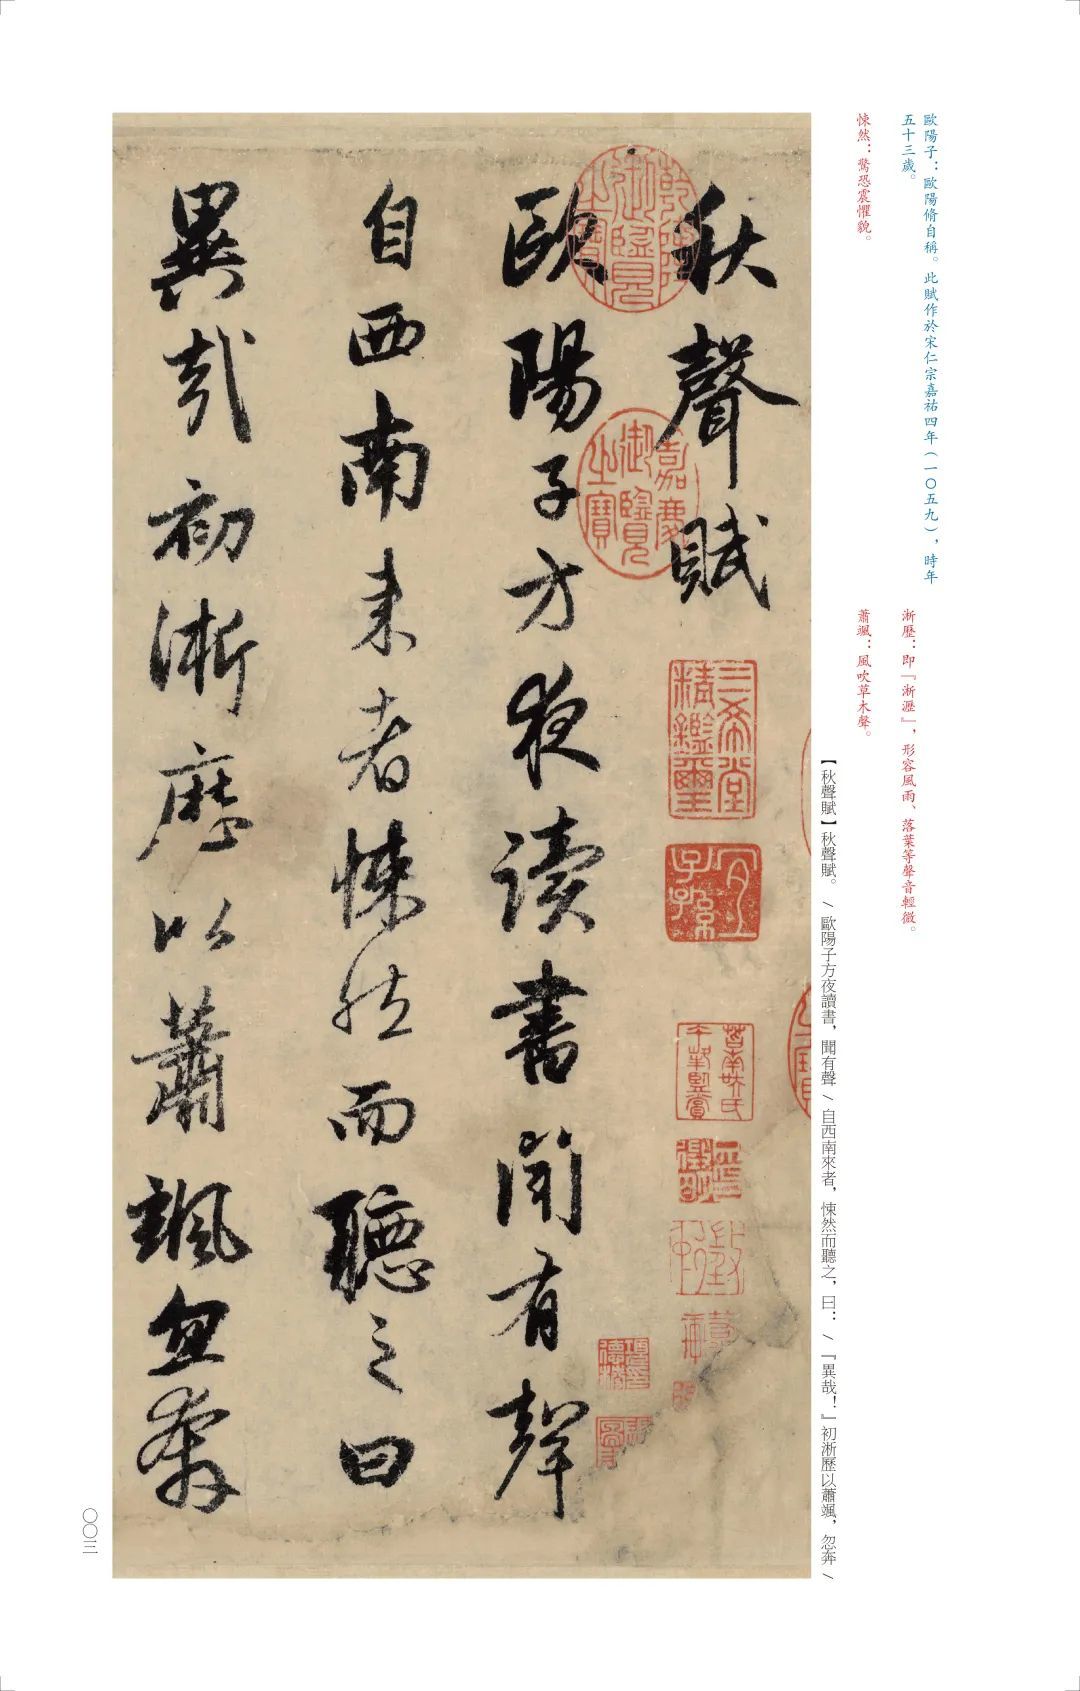 歐陽子：歐陽脩自稱。此賦作於宋仁宗嘉祐四年（一〇五九），時年
五十三歲。
悚然：驚恐震懼貌。
淅歷：即『淅瀝』，形容風雨、落葉等聲音輕微。
蕭颯：風吹草木聲。
【秋聲賦】秋聲賦。／歐陽子方夜讀書，聞有聲／自西南來者，悚然而聽之，曰：／『異哉！』初淅歷以蕭颯，忽奔／
秋聲賦
歐陽子方夜讀書聞有聲
自西南来者悚然而聽之曰
異哉初淅歷以蕭颯忽奔
乾隆御覽之寶
嘉慶御覽之寶
三希堂精鑑璽
宜子孫
〇〇三